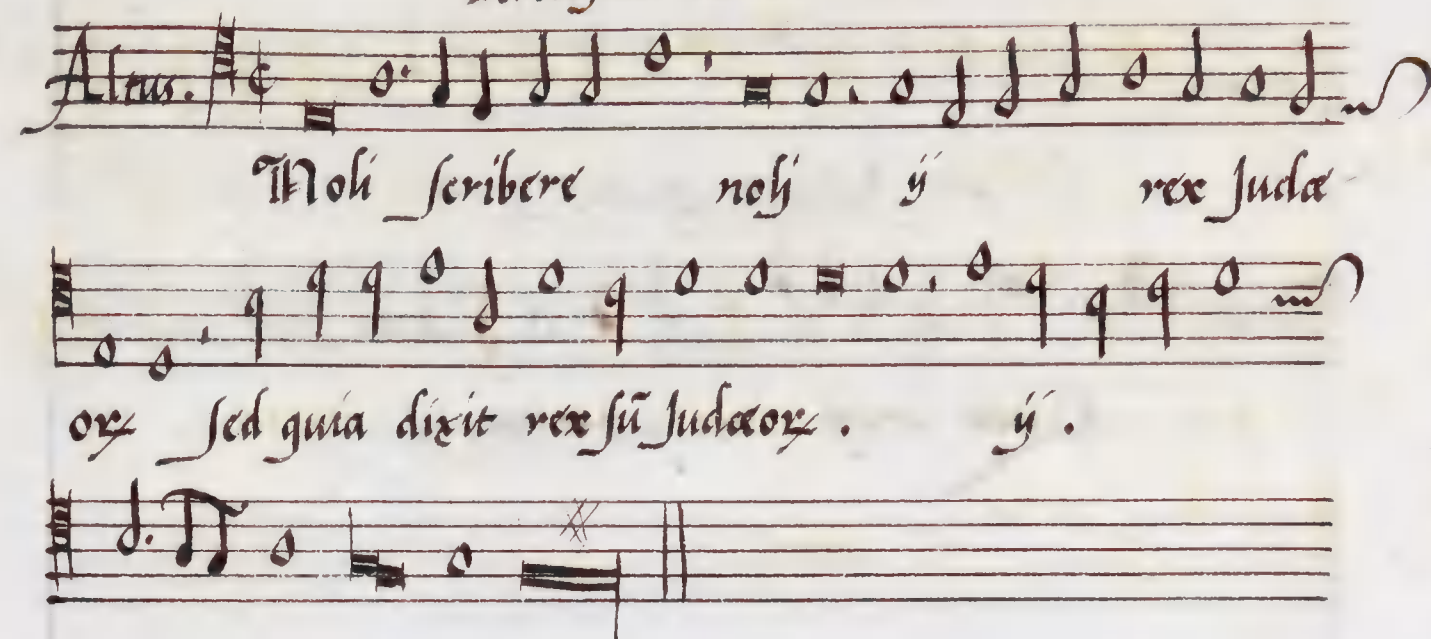 Altus.
Noli scribere nolj ij rex Judæ
orꝝ sed quia dixit rex sū Judæorꝝ . ij .